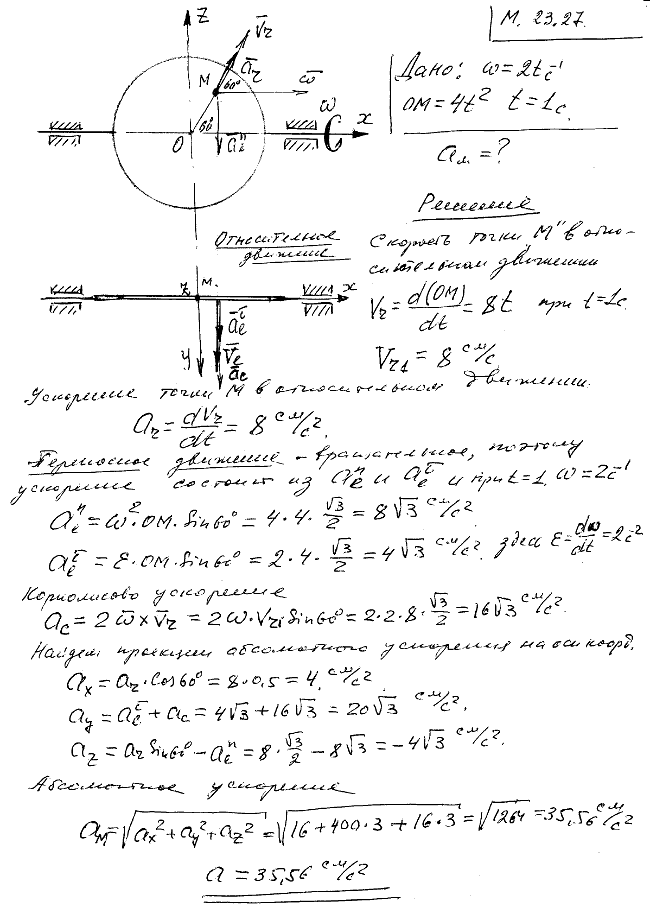 М. 23.27.
Z
V̄r
ār
M
60°
ω̄
ω
x
O
60°
āeⁿ
Дано: ω=2t c⁻¹
OM=4t² t=1c.
aм=?
Решение
Относительное
движение
Скорость точки "М" в отно-
сительном движении
Vr = d(OM)/dt = 8t при t=1c.
Vr1 = 8 см/с
z
M.
x
āeᵗ
V̄e
āc
y
Ускорение точки М в относительном движении.
ar = dVr/dt = 8 см/с².
Переносное движение - вращательное, поэтому
ускорение состоит из aeⁿ и aeᵗ и при t=1, ω=2c⁻¹
aeⁿ = ω²·OM·Sin60° = 4·4·√3/2 = 8√3 см/с²
aeᵗ = ε·OM·Sin60° = 2·4·√3/2 = 4√3 см/с². здесь ε=dω/dt=2c⁻²
Кориолисово ускорение
ac = 2ω̄×V̄r = 2ω·Vr1·Sin60° = 2·2·8·√3/2 = 16√3 см/с².
Найдем проекции абсолютного ускорения на оси коорд.
ax = ar·Cos60° = 8·0,5 = 4, см/с²
ay = aeᵗ + ac = 4√3 + 16√3 = 20√3 см/с².
az = ar Sin60° - aeⁿ = 8·√3/2 - 8√3 = -4√3 см/с².
Абсолютное ускорение
aм = √(ax² + ay² + az²) = √(16 + 400·3 + 16·3) = √1264 = 35,56 см/с²
a = 35,56 см/с²